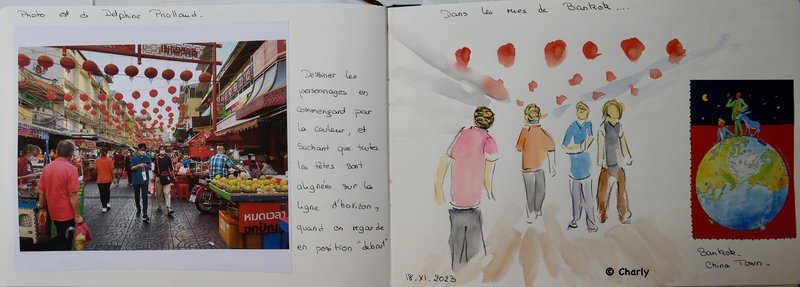 Photo est de Delphine Priollaud.
Dessiner les
personnages en
commençant par
la couleur, et
sachant que toutes
les têtes sont
alignées sur la
ligne d'horizon,
quand on regarde
en position "debout"
หมดเวลา
Dans les rues de Bankok....
18.XI.2023
© Charly
Bankok.
China Town.